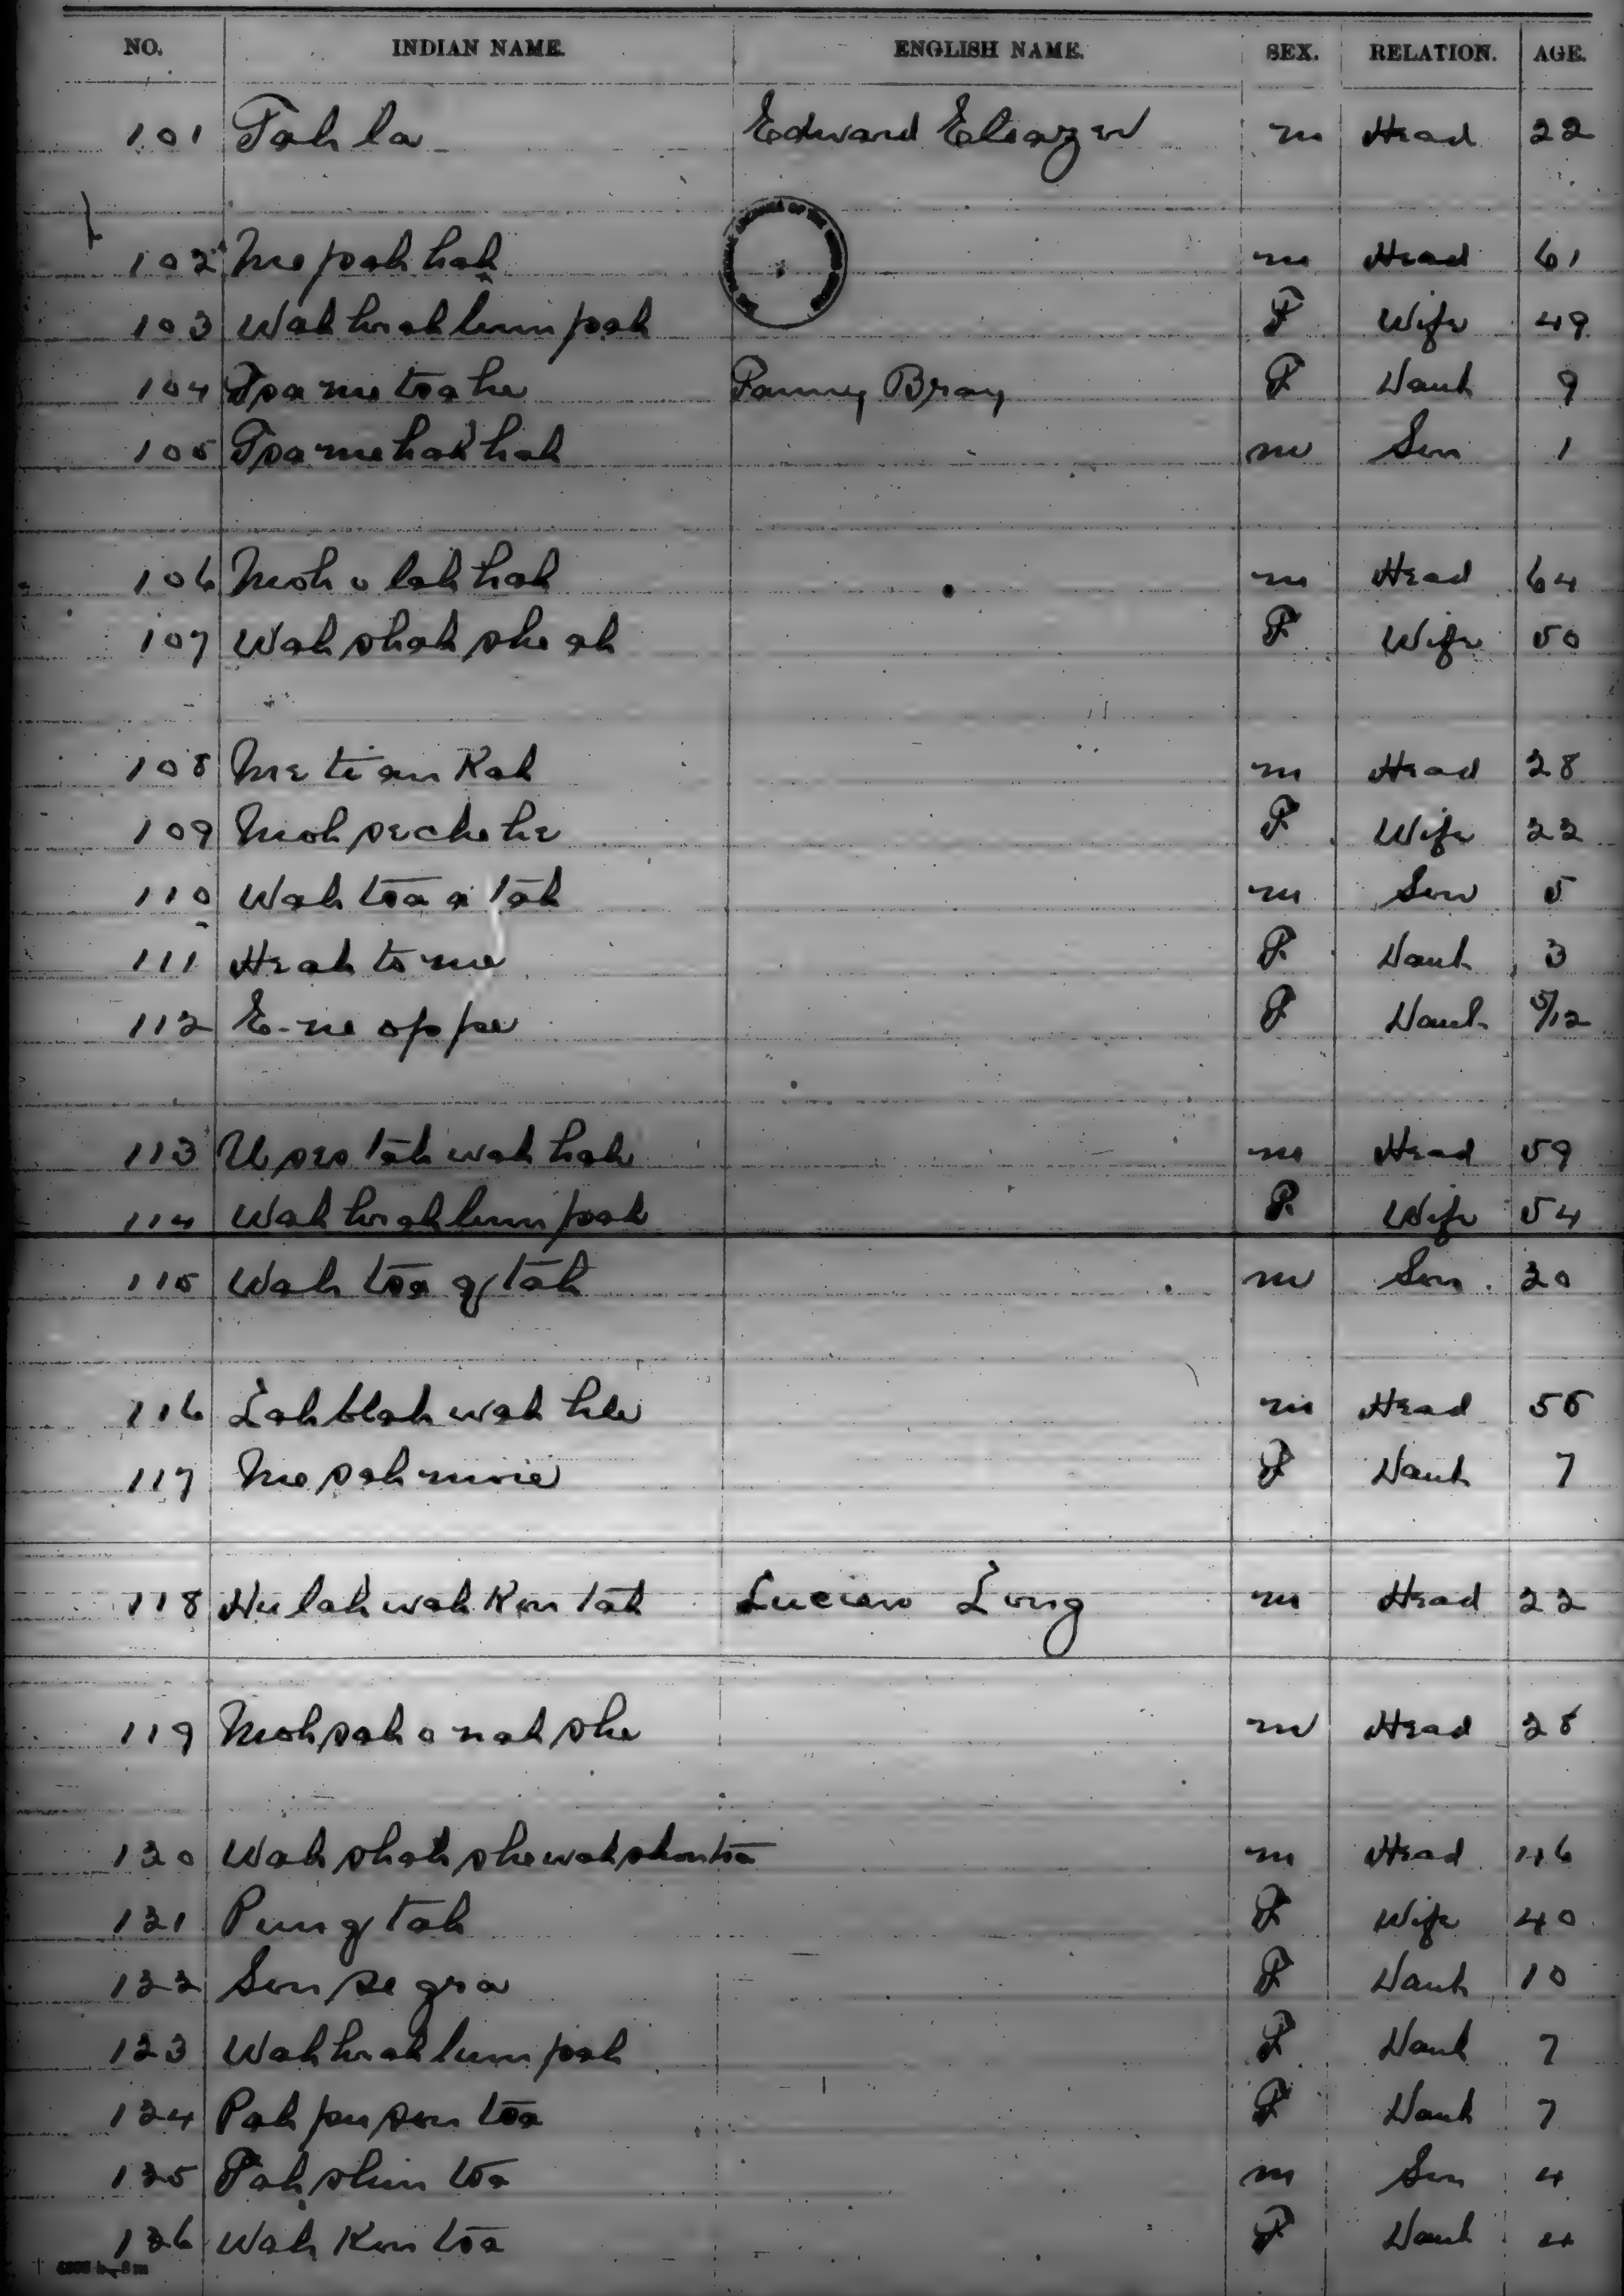 NO. INDIAN NAME. ENGLISH NAME. SEX. RELATION. AGE.
101 Tah la Edward Eleazer m Head 22
102 Me pah hah m Head 61
103 Wah hrah lum pah F Wife 49
104 Tsa me tsa he Fanny Bray F Dauh 9
105 Tsa me hah hah m Son 1
106 Moh o lah hah m Head 64
107 Wah shah she ah F Wife 50
108 Me ti an Kah m Head 28
109 Moh se che he F Wife 22
110 Wah tsa a tah m Son 5
111 Hrah to me F Dauh 3
112 E-ne op pe F Dauh 5/12
113 U ses tah wah hah m Head 59
114 Wah hrah lum pah F Wife 54
115 Wah tsa g tah m Son 20
116 Lah blah wah hu m Head 55
117 Me sah moie F Dauh 7
118 Hu lah wah Kon tah Lucien Long m Head 22
119 Moh sah o nah she m Head 28
120 Wah shah she wah shon tsa m Head 46
121 Pun q tah F Wife 40
122 Son se gra F Dauh 10
123 Wah hrah lum pah F Dauh 7
124 Pah pu son tsa F Dauh 7
125 Pah shun tsa m Son 4
126 Wah Kon tsa F Dauh 4